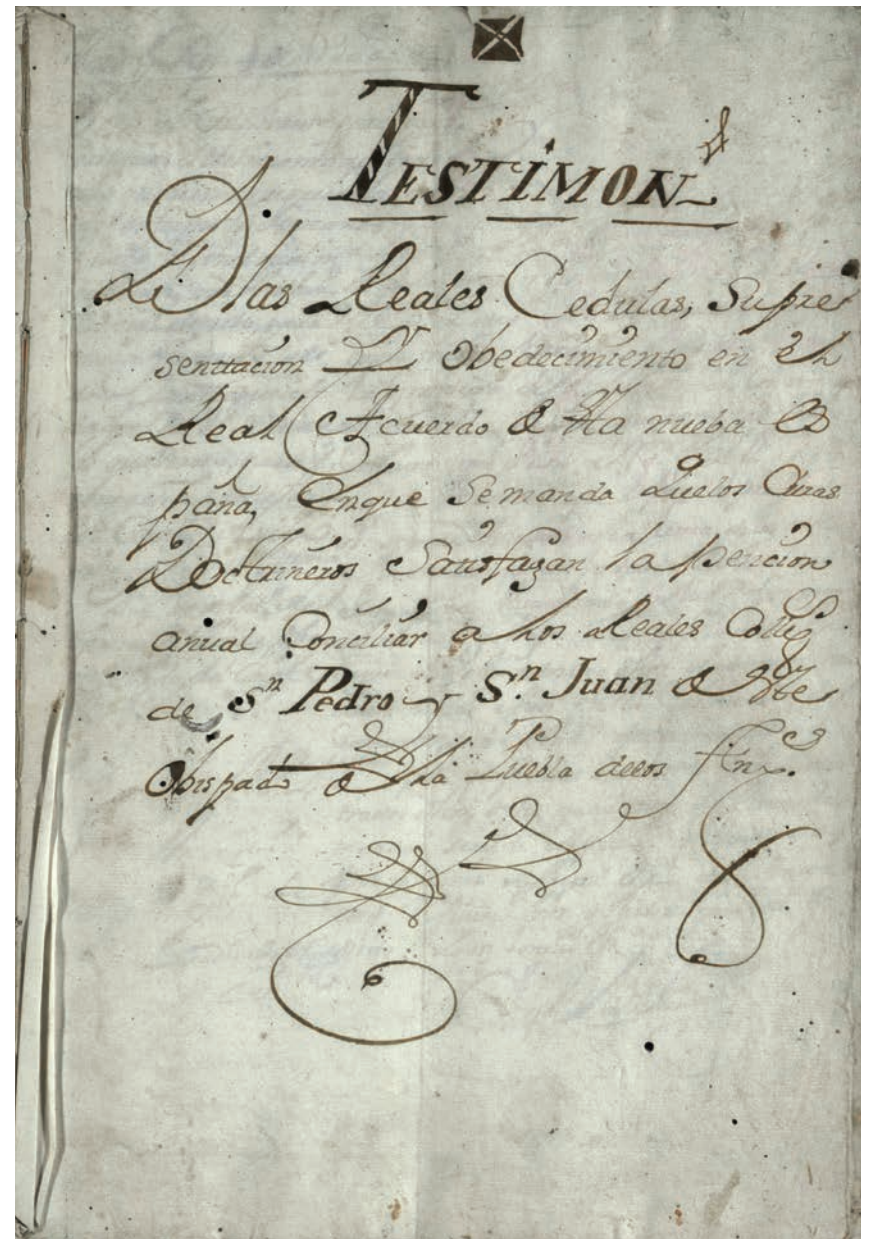 TESTIMONo
De las Reales Cedulas, Su pre
senttacion Y Obedecimiento en el
Real Acuerdo de Sta nueba es
paña, Enque Semanda Quelos Curas
Doctrineros Satisfagan la pencion
anual Conciliar a los Reales Colleg
de Sn Pedro y Sn Juan de Ste
Obispado de la Puebla delos Ans.